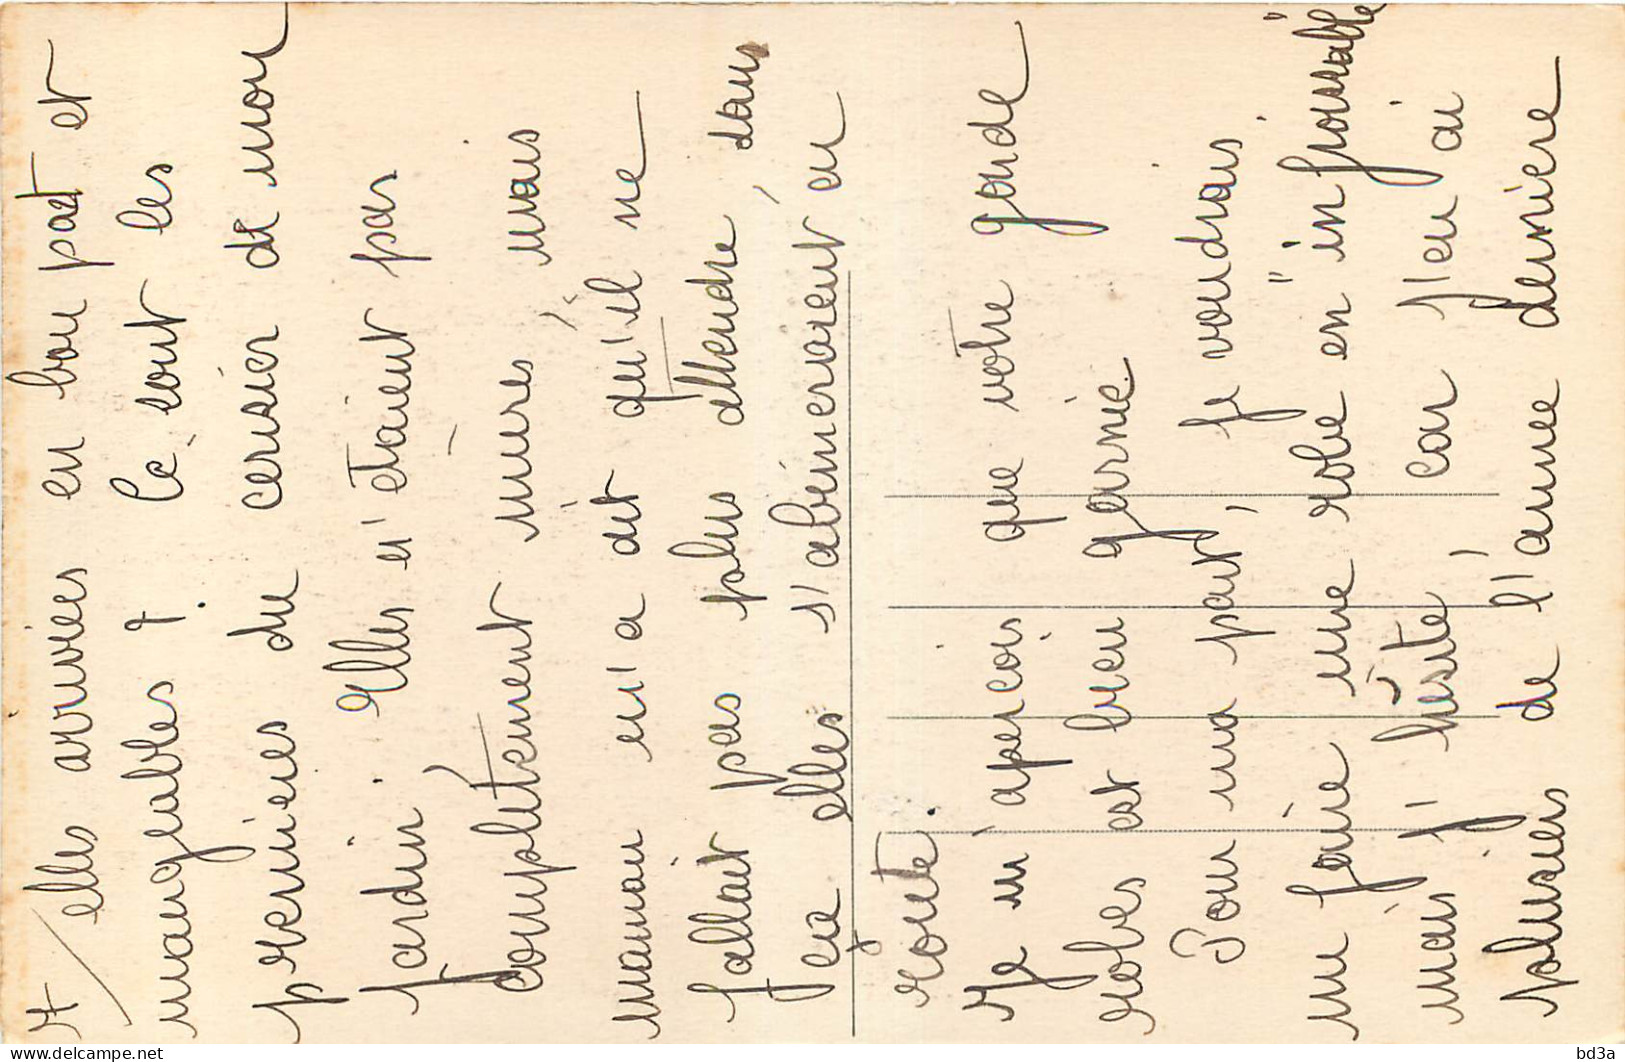 elles arrivées en bon part et
mangeables ? Ce sont les
premières du cerisier de mon
jardin. Elles n'étaient pas
complètement mûres, mais
maman m'a dit qu'il ne
fallait pas plus attendre, sans
que elles s'abîmeraient en
route.
Je m'aperçois que votre garde
robes est bien garnie.
Pour ma part, je voudrais
me faire une robe en "infroissable"
mais j'hésite, car j'en ai
plusieurs de l'année dernière
delcampe.net
bd3a